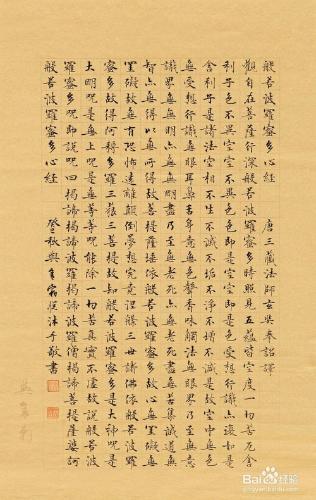 般若波羅蜜多心経 唐三藏法師玄奘奉詔譯
觀自在菩薩行深般若波羅蜜多時照見五蘊皆空度一切苦厄舍
利子色不異空空不異色色即是空空即是色受想行識亦復如是
舍利子是諸法空相不生不滅不垢不淨不增不減是故空中無色
無受想行識無眼耳鼻舌身意無色聲香味觸法無眼界乃至無意
識界無無明亦無無明盡乃至無老死亦無老死盡無苦集滅道無
智亦無得以無所得故菩提薩埵依般若波羅蜜多故心無罣礙無
罣礙故無有恐怖遠離顛倒夢想究竟涅槃三世諸佛依般若波羅
蜜多故得阿耨多羅三藐三菩提故知般若波羅蜜多是大神呪是
大明呪是無上呪是無等等呪能除一切苦真實不虛故說般若波
羅蜜多呪即說呪曰揭諦揭諦波羅揭諦波羅僧揭諦菩提薩婆訶
般若波羅蜜多心経 敬書
Baidu经验
jingyan.baidu.com